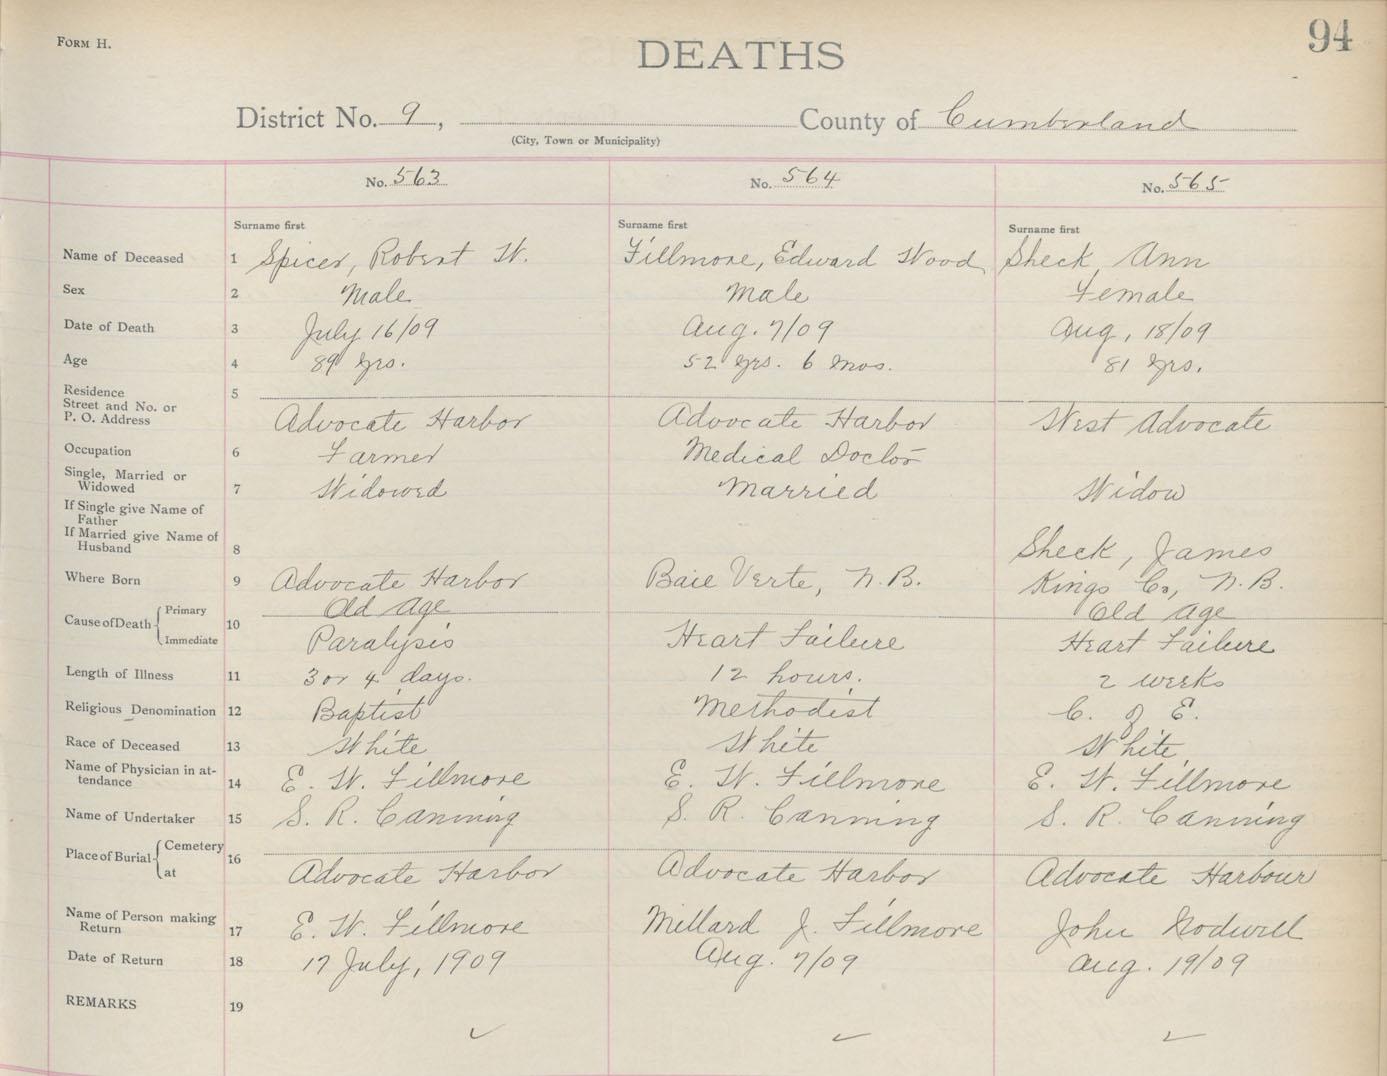 FORM H.
94
DEATHS
District No. 9, County of Cumberland
(City, Town or Municipality)
No. 563 No. 564 No. 565
Surname first Surname first Surname first
Name of Deceased 1 Spicer, Robert W. Fillmore, Edward Wood Sheck, Ann
Sex 2 Male Male Female
Date of Death 3 July 16/09 Aug. 7/09 Aug, 18/09
Age 4 89 yrs. 52 yrs. 6 mos. 81 yrs.
Residence 5
Street and No. or
P. O. Address Advocate Harbor Advocate Harbor West Advocate
Occupation 6 Farmer Medical Doctor
Single, Married or
Widowed 7 Widowed Married Widow
If Single give Name of
Father
If Married give Name of
Husband 8 Sheck, James
Where Born 9 Advocate Harbor Baie Verte, N.B. Kings Co, N.B.
Cause of Death Primary 10 Old Age Old Age
Immediate Paralysis Heart Failure Heart Failure
Length of Illness 11 3 or 4 days. 12 hours. 2 weeks
Religious Denomination 12 Baptist Methodist C. of E.
Race of Deceased 13 White White White
Name of Physician in at-
tendance 14 E. W. Fillmore E. W. Fillmore E. W. Fillmore
Name of Undertaker 15 S. R. Canning S. R. Canning S. R. Canning
Place of Burial Cemetery 16
at Advocate Harbor Advocate Harbor Advocate Harbour
Name of Person making
Return 17 E. W. Fillmore Millard J. Fillmore John
Date of Return 18 17 July, 1909 Aug. 7/09 Aug. 19/09
REMARKS 19